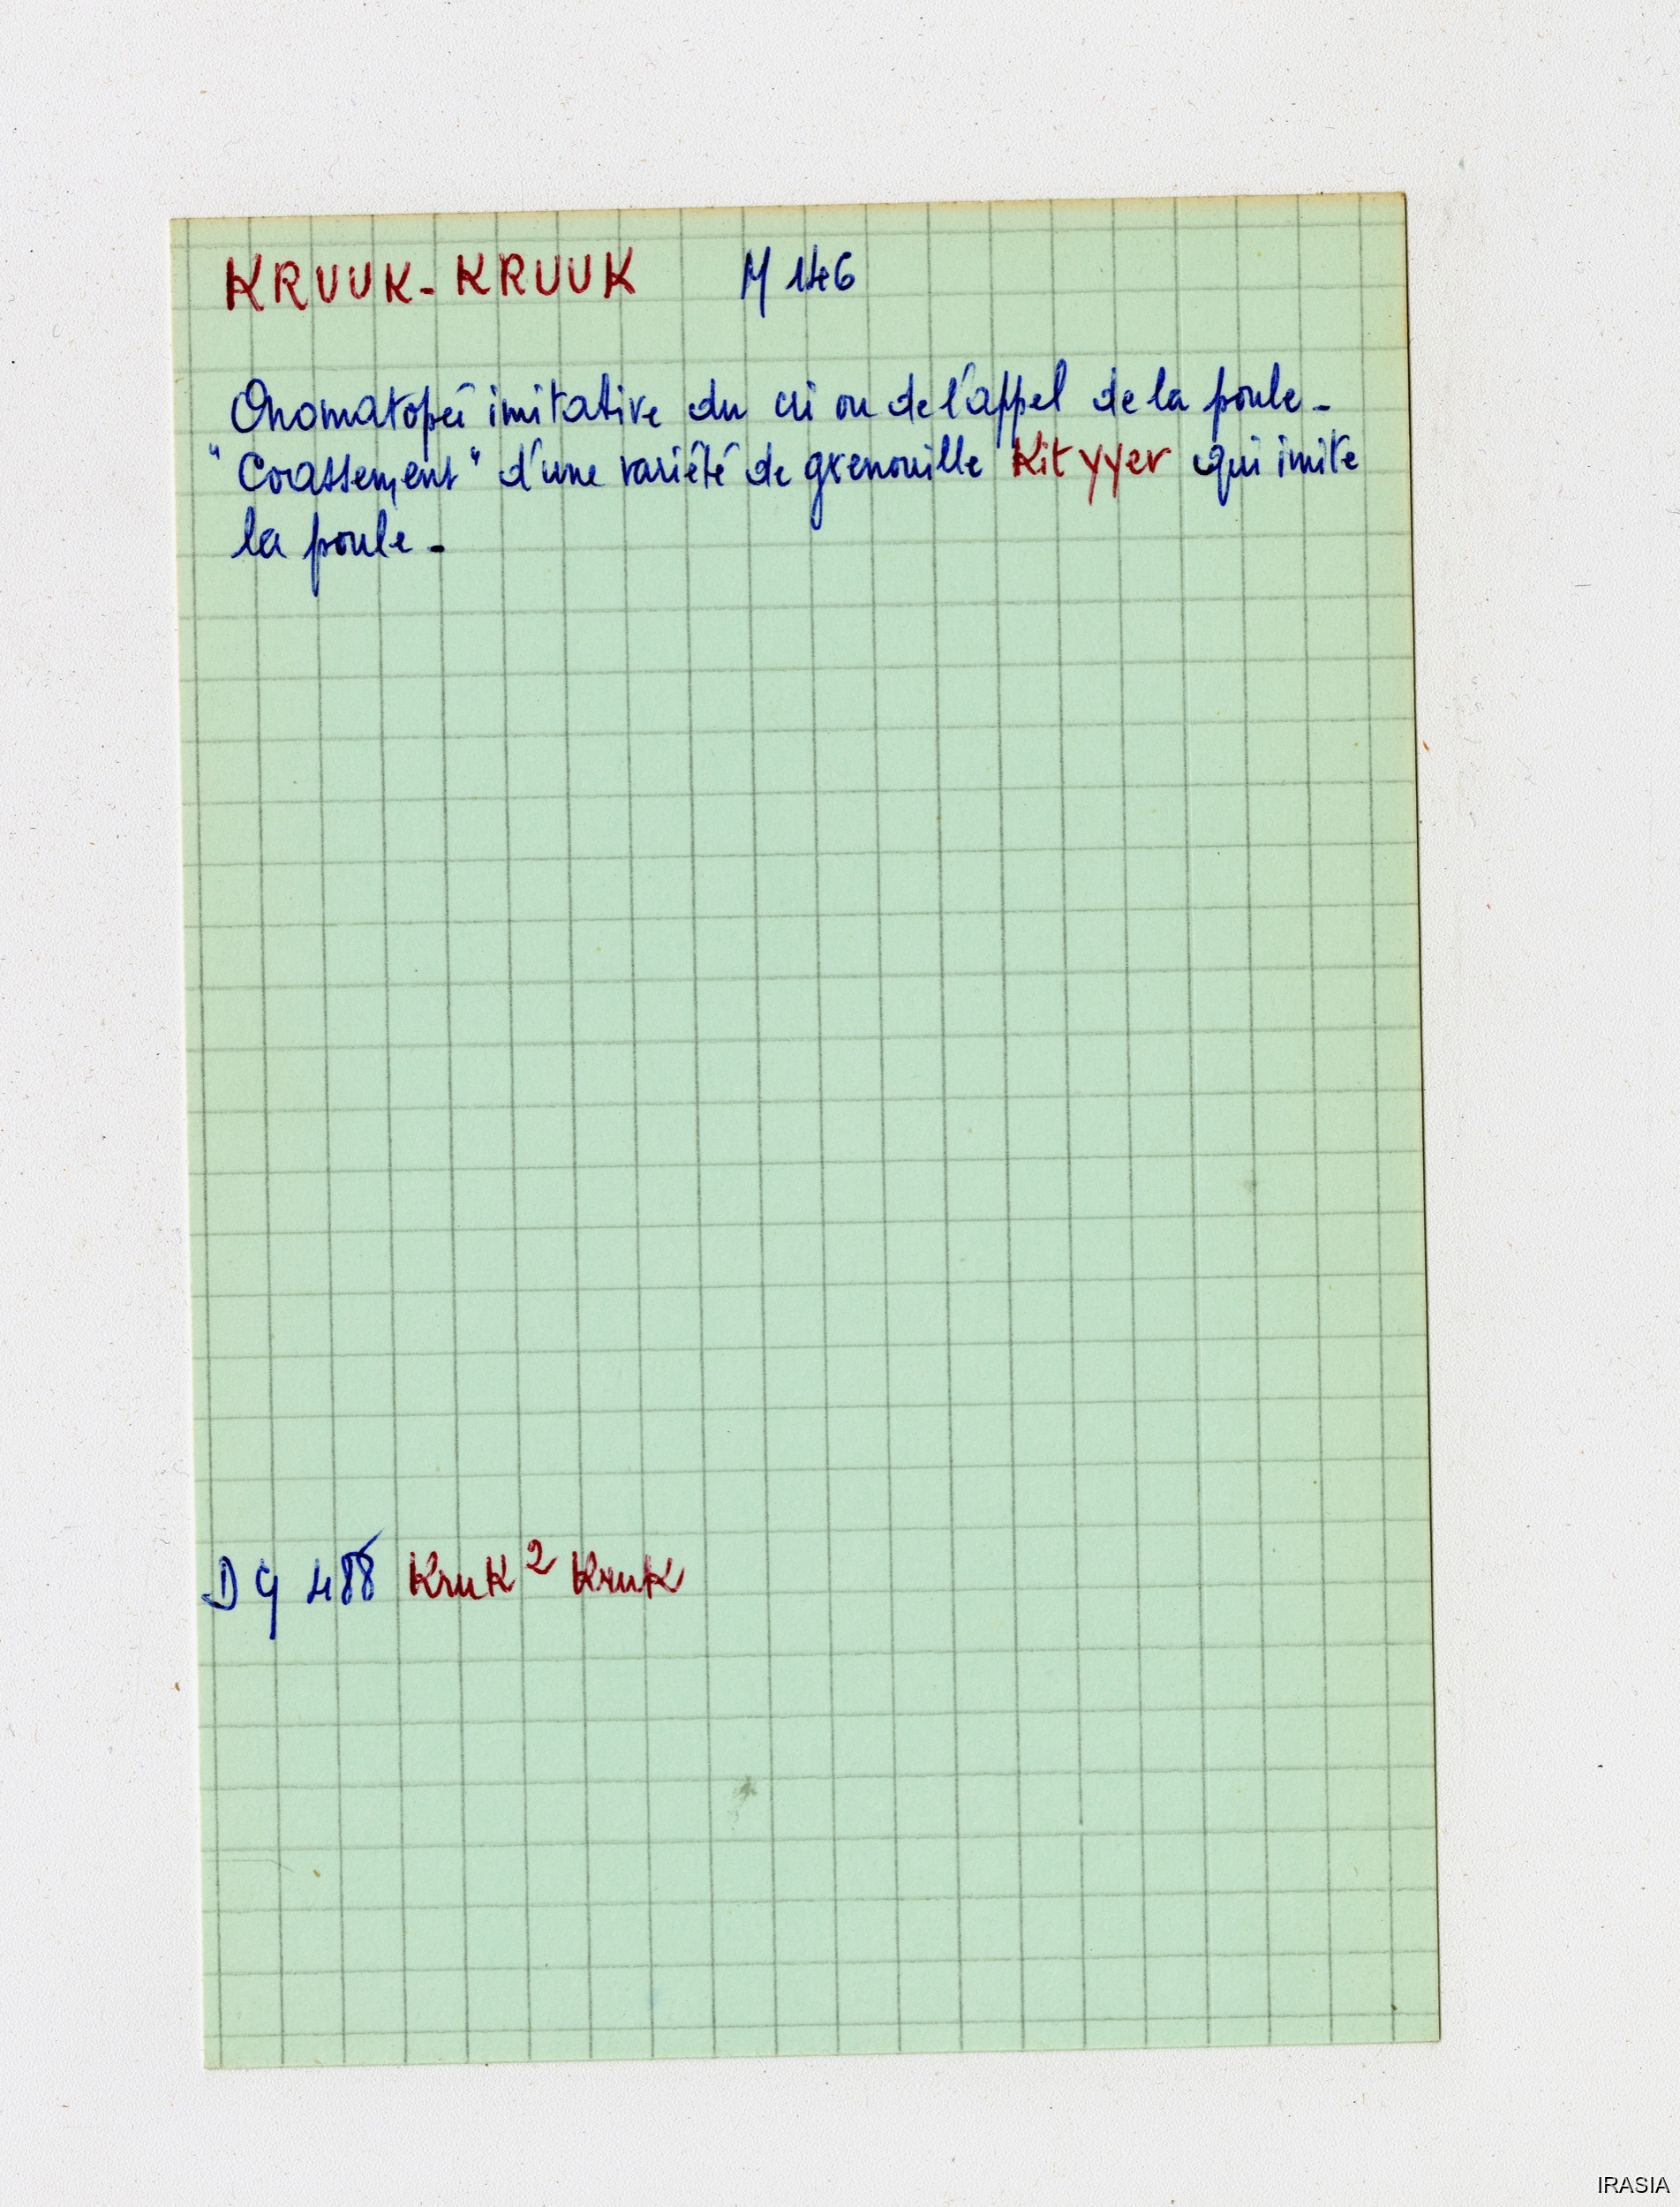 KRUUK-KRUUK M 146
Onomatopée imitative du cri ou de l'appel de la poule -
"Coassement" d'une variété de grenouille Kit yyer qui imite
la poule -
DG 488 Kruk² Kruk
IRASIA